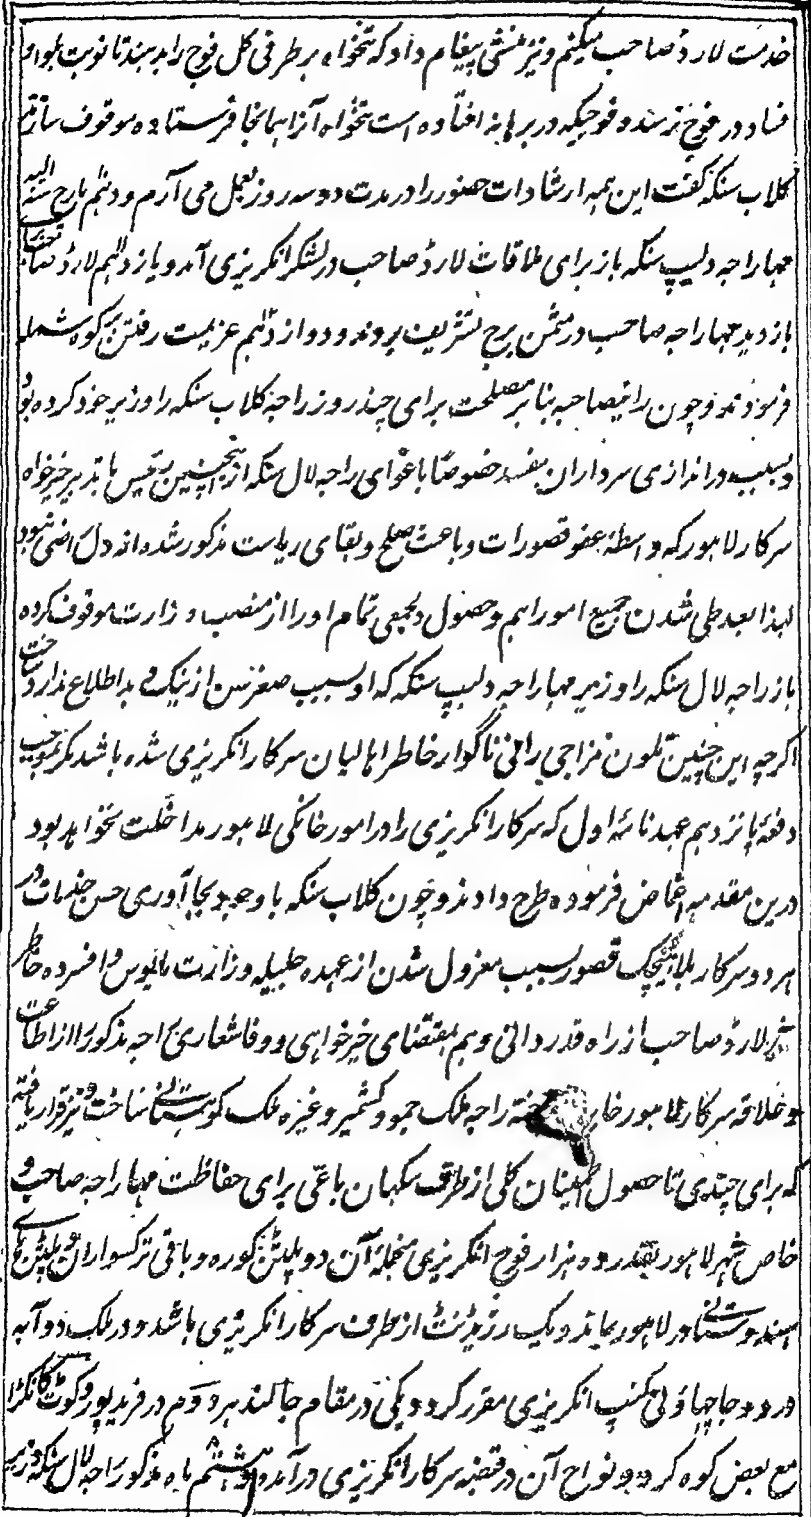 خدمت لارڈ صاحب میکنم و نیز منشی پیغام داد که تنخواه برطرفی کل فوج را بدهند تا نوبت بلوا و
فساد در فوج نرسد و فوجیکه در برهانه افتاده است تنخواه آنرا همانجا فرستاده موقوف سازند
کلاب سنکه گفت این همه ارشادات حضور را در مدت دو سه روز بعمل می آرم و دهم مارچ سنه الیه
مهاراجه دلیپ سنکه باز برای ملاقات لارڈ صاحب در لشکر انکریزی آمد و یازدهم لارڈ صاحب
بازدید مهاراجه صاحب در مثمن برج تشریف بردند و دوازدهم عزیمت رفتن بر کوه شمله
فرمودند و چون رانیصاحبه بنابر مصلحت برای چند روز راجه کلاب سنکه را وزیر خود کرده بود
و بسبب دراندازی سرداران مفسد خصوصا باغوای راجه لال سنکه از اینچنین رئیس با تدبیر خیرخواه
سرکار لاهور که واسطهٔ عفو قصورات و باعث صلح و بقای ریاست مذکور شده اند دل راضی نبود
لهذا بعد طی شدن جمیع امورات اهم و حصول دلجمعی تمام او را از منصب وزارت موقوف کرده
باز راجه لال سنکه را وزیر مهاراجه دلیپ سنکه که او بسبب صغر سن از نیک و بد اطلاع ندارد ساخت
اکرچه این چنین تلون مزاجی رانی ناگوار خاطر اهالیان سرکار انکریزی شده باشد مکر بموجب
دفعهٔ پانزدهم عهدنامهٔ اول که سرکار انکریزی را در امور خانکی لاهور مداخلت نخواهد بود
درین مقدمه اغماض فرموده طرح دادند و چون کلاب سنکه باوجود بجا آوری حسن خدمات در
هر دو سرکار بلا هیچیک قصور بسبب معزول شدن از عهده جلیله وزارت مایوس و افسرده خاطر
شد لارڈ صاحب از راه قدردانی و هم بمقتضای خیرخواهی و وفاشعاری راجه مذکور را از اطاعت
و علاقه سرکار لاهور خارج راجه ملک جمو و کشمیر و غیره ملک کوهستانی ساخت و نیز قرار یافته
که برای چندی تا حصول اطمینان کلی از طرف سکهان باغی برای حفاظت مهاراجه صاحب و
خاص شهر لاهور بقدر ده هزار فوج انکریزی منجملهٔ آن دو پلٹن کوره و باقی ترکسواران و پلٹن های
هندوستانی در لاهور بماند و یک رزیڈنٹ از طرف سرکار انکریزی باشد و در ملک دوآبه
در دو جا چهاونی کنپ انکریزی مقرر کردد یکی در مقام جالندهر دوم در فریدپور و کوٹ کانکڑا
مع بعض کوه کرد و نواح آن در قبضه سرکار انکریزی درآمد و هشتم ماه مذکور راجه لال سنکه وزیر